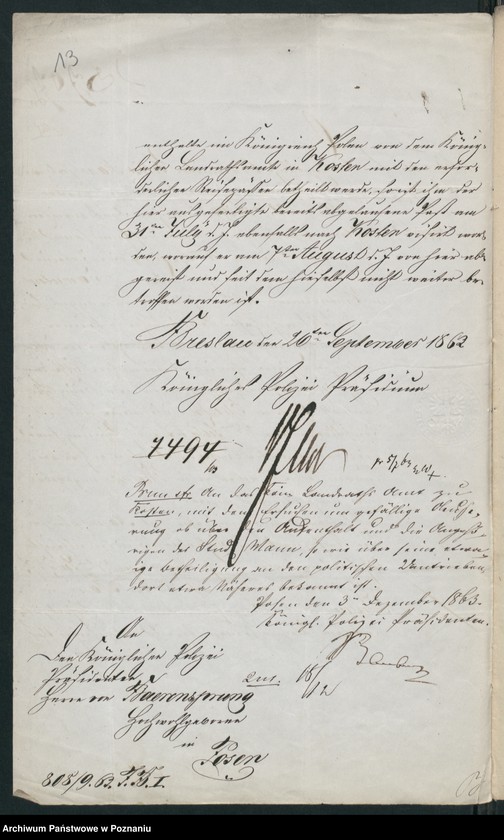 13
enthalte im Königreich Polen von dem König-
lichen Landrathsamte in Kosten mit den erfor-
derlichen Reisepässen betheilt werde, sowie ihm der
hier ausgefertigte bereits abgelaufene Paß am
31ten July d. J. ebenfalls nach Kosten visirt wor-
den, worauf er am 7ten August d. J. von hier ab-
gereist und seit dem hieselbst nicht weiter be-
troffen worden ist.
Breslau den 26ten September 1863
Königliches Polizei Präsidium
7494
pr 5/9 63
Brm. cfr. An das Kön. Landraths Amt zu
Kosten, mit dem Ersuchen um gefällige Aeuße-
rung ob über den Aufenthalt und die Angehö-
rigen des Stud. Mann, sowie über seine etwa-
ige Betheiligung an den politischen Umtrieben,
dort etwas Näheres bekannt ist.
Posen den 3 Dezember 1863.
Königl. Polizei Präsidenten.
An
Den Königlichen Polizei
Präsidenten
Herrn von Baerensprung
Hochwohlgeboren
in
Posen
18/12
808/9. 63. P. J. I
Archiwum Państwowe w Poznaniu